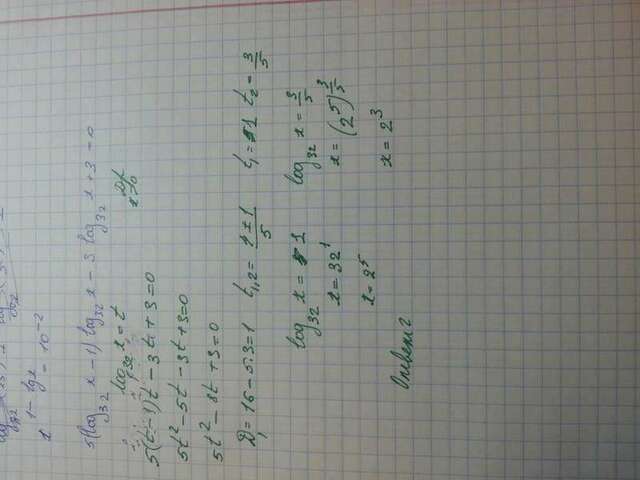 x^{1-lgx} = 10^{-2}
5(log_{32} x - 1) log_{32} x - 3 log_{32} x + 3 = 0
log_{32} x = t
x > 0
5(t-1)t - 3t + 3 = 0
5t² - 5t - 3t + 3 = 0
5t² - 8t + 3 = 0
D_1 = 16 - 5·3 = 1 t_1 = 1 t_2 = 3/5
log_{32} x = 1 log_{32} x = 3/5
x = 32^1 x = (2^5)^{3/5}
x = 2^5 x = 2^3